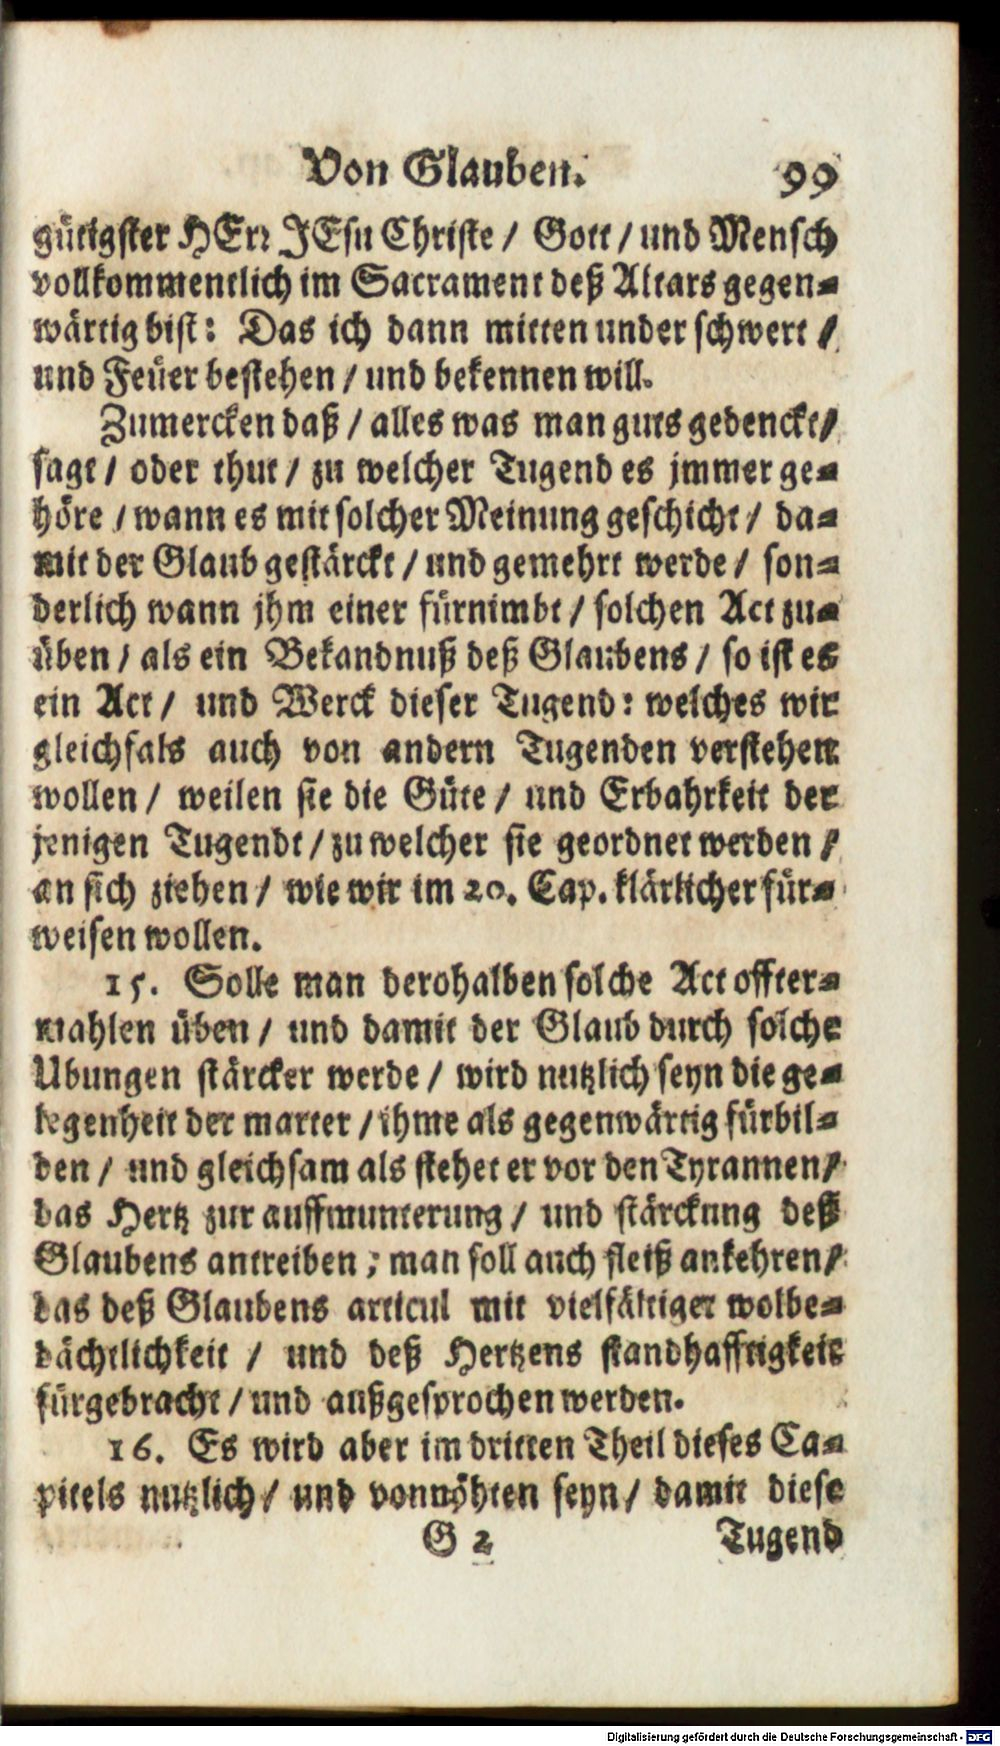 Von Glauben. 99
gütigster HErꝛ JEsu Christe / Gott / und Mensch
vollkommentlich im Sacrament deß Altars gegen-
wärtig bist: Das ich dann mitten under schwert /
und Feüer bestehen / und bekennen will.
Zumercken daß / alles was man guts gedenckt /
sagt / oder thut / zu welcher Tugend es jmmer ge-
höre / wann es mit solcher Meinung geschicht / da-
mit der Glaub gestärckt / und gemehrt werde / son-
derlich wann jhm einer fürnimbt / solchen Act zu-
üben / als ein Bekandnuß deß Glaubens / so ist es
ein Act / und Werck dieser Tugend: welches wir
gleichfals auch von andern Tugenden verstehen
wollen / weilen sie die Güte / und Erbahrkeit der
jenigen Tugendt / zu welcher sie geordnet werden /
an sich ziehen / wie wir im 20. Cap. klärlicher für-
weisen wollen.
15. Solle man derohalben solche Act offter-
mahlen üben / und damit der Glaub durch solche
Ubungen stärcker werde / wird nutzlich seyn die ge-
legenheit der marter / ihme als gegenwärtig fürbil-
den / und gleichsam als stehet er vor den Tyrannen /
das Hertz zur auffmunterung / und stärckung deß
Glaubens antreiben ; man soll auch fleiß ankehren /
das deß Glaubens articul mit vielfältiger wolbe-
dächtlichkeit / und deß Hertzens standhafftigkeit
fürgebracht / und außgesprochen werden.
16. Es wird aber im dritten Theil dieses Ca-
pitels nutzlich / und vonnöhten seyn / damit diese
G 2 Tugend
Digitalisierung gefördert durch die Deutsche Forschungsgemeinschaft - DFG